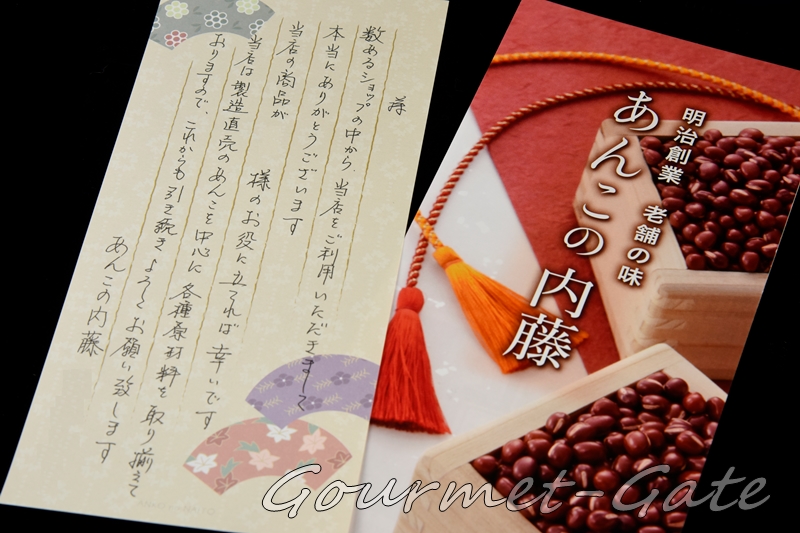 様
数あるショップの中から、当店をご利用いただきまして
本当にありがとうございます
当店の商品が　様のお役に立てれば幸いです
当店は製造直売のあんこを中心に各種原材料を取り揃えて
おりますので、これからも引き続きよろしくお願い致します
あんこの内藤
明治創業　老舗の味
あんこの内藤
Gourmet-Gate